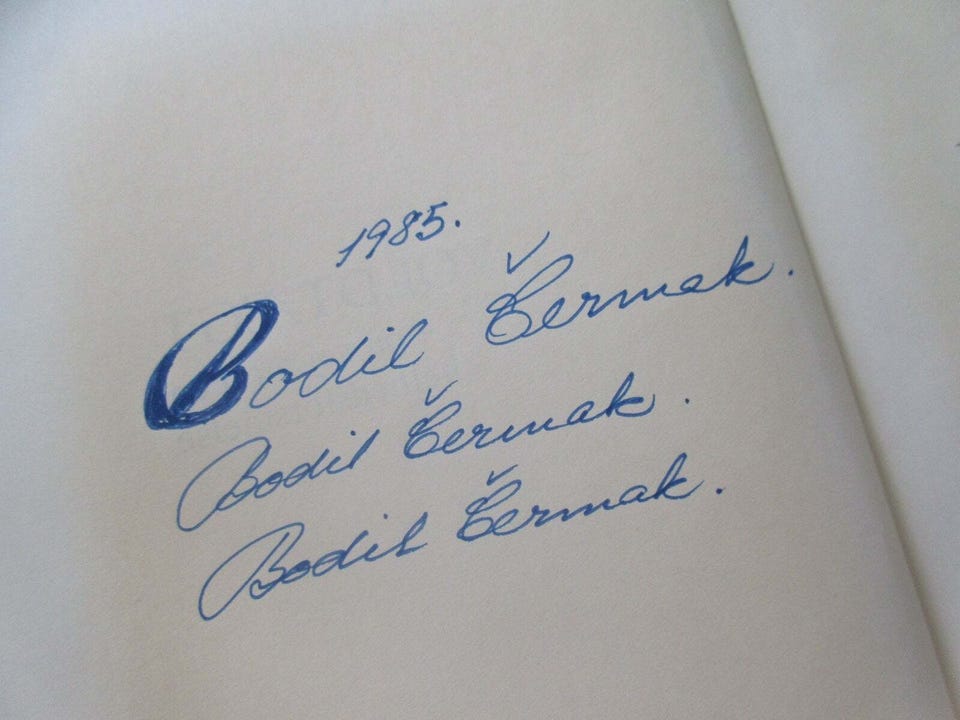 1985.
Bodil Čermak.
Bodil Čermak.
Bodil Čermak.